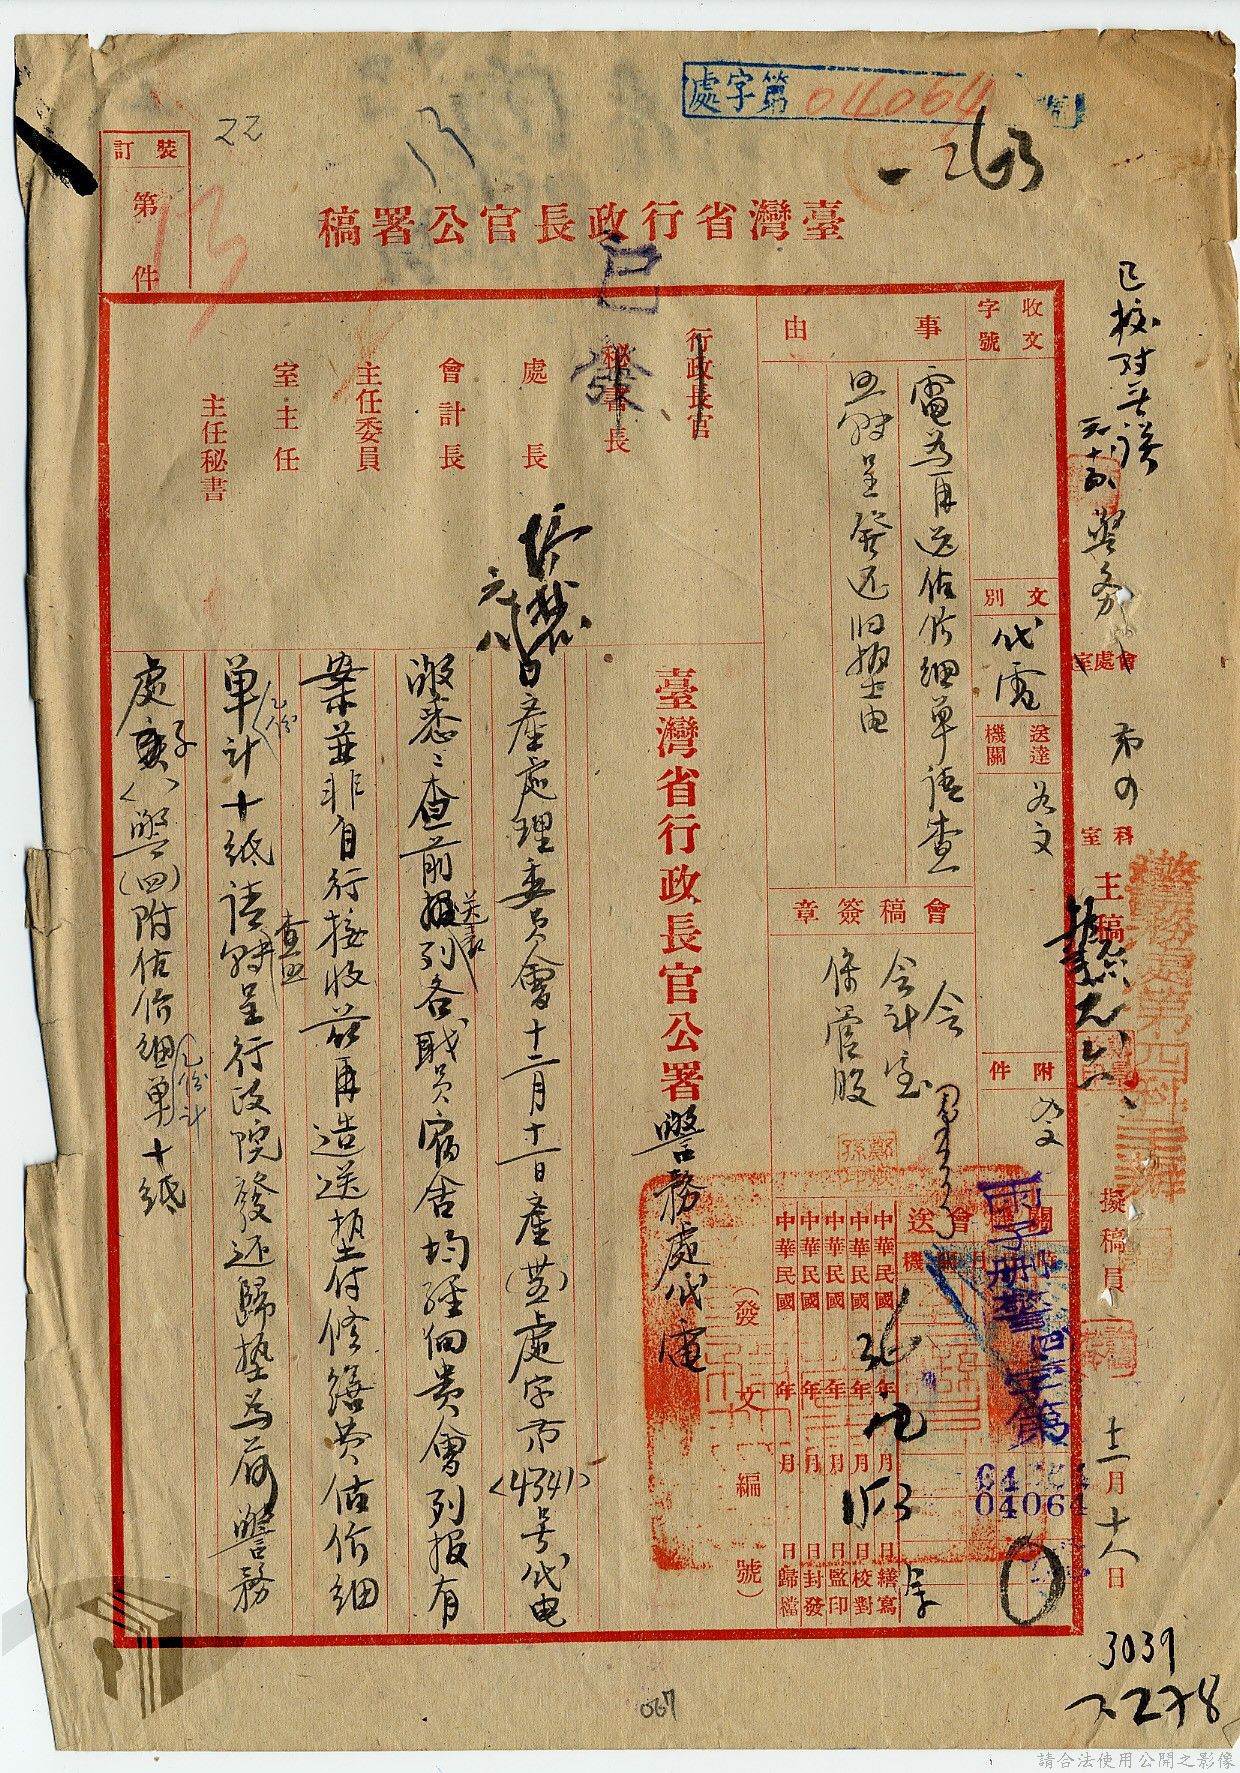 處字第04064號
263
22
13
裝訂
第
件
13
臺灣省行政長官公署稿
已發
已校對無誤
收文
字號
事由
電為再送估价細單請查
照轉呈發还旧墊由
文別
代電
送達
機關
附件
會稿簽章
會
會計室
保管股
警務
會處室
第四
科室
主稿
擬稿員
十二月十八日
警務處第四科主辦
行政長官
秘書長
處長
會計長
主任委員
室主任
主任秘書
關機會送
中華民國36年元月 日繕寫
中華民國 年 月 日校對
中華民國 年 月 日監印
中華民國 年 月 日封發
中華民國 年 月 日歸檔
(發文編號)
字第
04064
臺灣省行政長官公署警務處代電
日產處理委員會十二月十一日產(卅五)處字第(4341)号代电
敬悉查前送列各職員宿舍均經向貴會列报有
案並非自行接收茲再造送墊付修繕費估价細
單乙份計十紙請查照轉呈行政院發还歸墊為荷警務
處子(警)(四)附估价細單乙份計十紙
3039
2278
067
請合法使用公開之影像